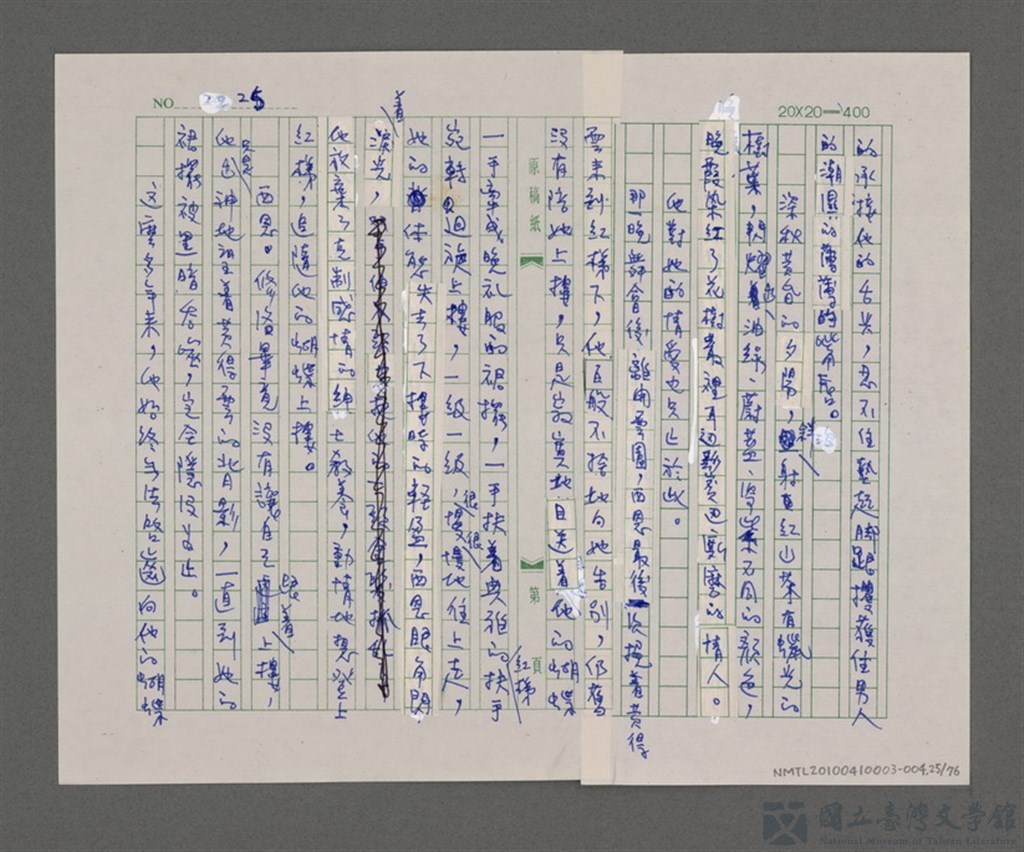 NO. 25
20X20=400
的承接他的舌尖,忍不住墊起腳跟摟獲住男人
的潮濕的薄薄的嘴唇。
深秋黃昏的夕陽,斜射真紅山茶有蠟光的
樹葉,閃耀出油綠、蔚藍、深紫不同的顏色,
晚霞染紅了花樹叢裡耳廝磨的情人。
他對她的情愛也只止於此。
那一晚舞會後,離開雲園,西恩最後一次挽著黃得
雲來到紅梯下,他百般不捨地向她告別,仍舊
沒有陪她上樓,只是地目送著他的蝴蝶
原稿紙 第 頁
一手牽晚礼服的裙擺,一手扶著典雅的紅梯扶手
宛轉迴旋上樓,一級一級,很慢很慢地往上走,
她的体態失去了下樓時的輕盈,西恩眼角閃
著淚光,
他放棄了克制感情的紳士教養,動情地想登上
紅梯,追隨他的蝴蝶上樓。
西恩。修洛畢竟沒有讓自己跟著上樓,
他只是出神地望著黃得雲的背影,一直到她的
裙擺被黑暗吞噬,完全隱沒為止。
這麼多年來,他始終無法啟齒向他的蝴蝶
NMTL20100410003-004.25/76
國立臺灣文學館
National Museum of Taiwan Literature